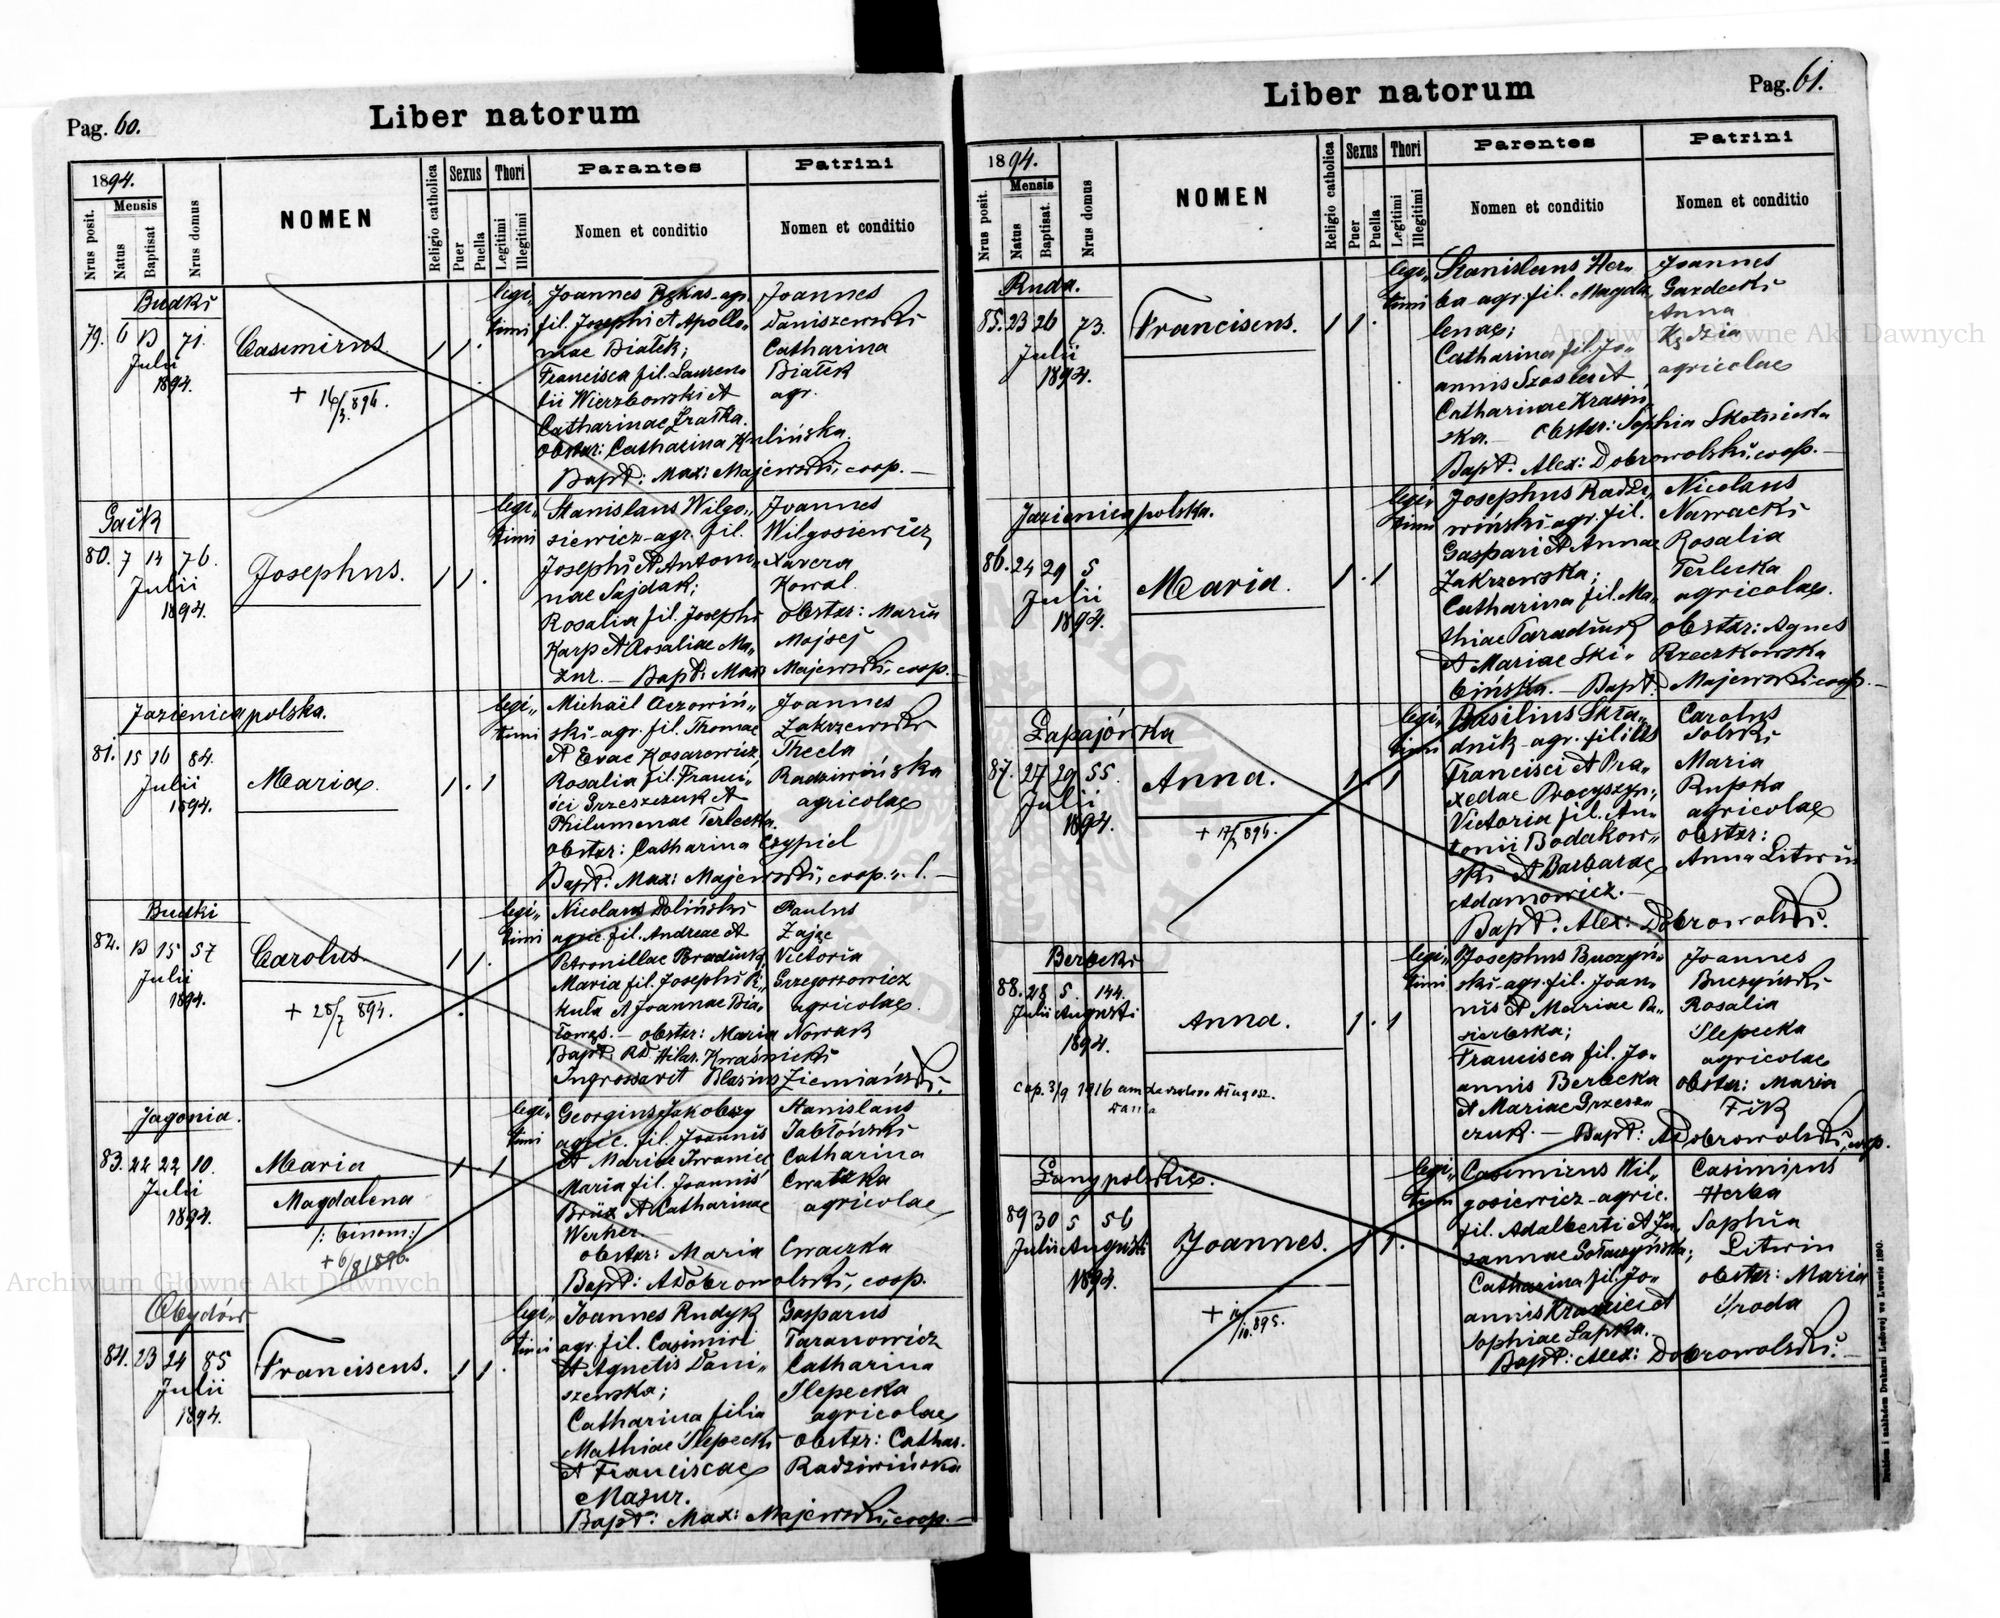 Pag. 60.
Liber natorum
1894.
Mensis
Nrus posit.
Natus
Baptisat
Nrus domus
NOMEN
Religio catholica
Sexus
Puer
Puella
Thori
Legitimi
Illegitimi
Parantes
Nomen et conditio
Patrini
Nomen et conditio
Budki
79. 6 13 71.
Julii
1894.
Casimirus.
legi„
timi
Joannes
fil. Josephi et Apollo„
niae Białek;
Francisca fil. Lauren„
tii Wierzbowski et
Catharinae
Obster: Catharina Kulińska.
Bapt: Max: Majewski, coop. —
Joannes
Daniszewski
Catharina
Białek
agr.
Gaik
80. 7 14 76.
Julii
1894.
Josephus.
legi„
timi
Stanislaus Wilgo„
siewicz - agr. fil.
Josephi et Anton„
nae Sajdak;
Rosalia fil. Josephi
Karp et Rosaliae Ma„
zur. — Bapt: Max Majewski, coop. —
Joannes
Wilgosiewicz
Xavera
Kowal
obster: Maria
Majsej
Jazienica polska.
81. 15 16 84.
Julii
1894.
Maria.
legi„
timi
Michaël
ski - agr. fil. Thomae
et Evae Kosarowicz,
Rosalia fil. Franci„
sci Grzeszczuk et
Philumenae Terlecka.
obster: Catharina Czypiel
Bapt: Max: Majewski, coop. v. l. —
Joannes
Zakrzewski
Thecla
Radziwińska
agricolae
Budki
82. 13 15 57
Julii
1894.
Carolus.
+ 28/7 894.
legi„
timi
Nicolaus Doliński
agric. fil. Andreae et
Petronillae
Maria fil. Josephi
et Joannae Bia„
łowąs. — obster: Maria Nowak
Bapt: RD Hilar. Kwaśnicki
Ingrossavit Blasius Ziemiański.
Paulus
Zając
Victoria
Grzegorzowicz
agricolae.
Jagonia.
83. 22 22 10.
Julii
1894.
Maria
Magdalena
/: binom :/
+ 6/8 1896.
legi„
timi
Georgius Jakobczy
agric. fil. Joannis
et Mariae Iwaniec
Maria fil. Joannis
Brüx et Catharinae
Werher.
obster: Maria Cwaczka
Bapt: ADobrowolski, coop.
Stanislaus
Jabłoński
Catharina
agricolae
Obydów
84. 23 24 85
Julii
1894.
Franciscus.
legi„
timi
Joannes Rudyk
agr. fil. Casimiri
et Agnetis Dani„
szewska;
Catharina filia
Mathiae Slepecki
et Franciscae
Mazur.
Bapt: Max: Majewski, coop. —
Gasparus
Taranowicz
Catharina
Slepecka
agricolae
obster: Cathar.
Radziwińska
Pag. 61.
Liber natorum
1894.
Mensis
Nrus posit.
Natus
Baptisat.
Nrus domus
NOMEN
Religio catholica
Sexus
Puer
Puella
Thori
Legitimi
Illegitimi
Parentes
Nomen et conditio
Patrini
Nomen et conditio
Ruda.
85. 23 26 73.
Julii
1894.
Franciscus.
legi„
timi
Stanislaus Her„
ba - agr. fil. Magda„
lenae;
Catharina fil. Jo„
annis Szosler et
Catharinae Krasiń„
ska. — Obster: Sophia Skotnicka
Bapt: Alex: Dobrowolski, coop. —
Joannes
Gazdecki
Anna
agricolae
Jazienica polska.
86. 24 29 5
Julii
1894.
Maria.
legi„
timi
Josephus Radzi„
wiński - agr. fil.
Gaspari et Annae
Zakrzewska;
Catharina fil. Ma„
thiae Taradiuk
et Mariae Ski„
bińska. — Bapt: Majewski, coop. —
Nicolaus
Nawacki
Rosalia
Terlecka
agricolae.
obster: Agnes
Rzeczkowska
Łapajówka
87. 27 29 55.
Julii
1894.
Anna.
legi„
timi
Basilius Skła„
dnik - agr. filius
Francisci et Pra„
xedae Procyszyn„
Victoria fil. An„
tonii Bodakow„
ski et Barbarae
Adamowicz. —
Bapt: Alex: Dobrowolski.
Carolus
Solski
Maria
Rupka
agricolae
obster:
Anna Litwin
Berbeki
88. 28 5. 144.
Julii Augusti
1894.
Anna.
legi„
timi
Josephus Buczyń„
ski - agr. fil. Joan„
nis et Mariae Pa„
sierbska;
Francisca fil. Jo„
annis Berbeka
et Mariae Grzesz„
czuk. — Bapt: ADobrowolski, coop.
Joannes
Buczyński
Rosalia
Slepecka
agricolae
obster: Maria
Fik
Łany polskie.
89 30 5 56
Julii Augusti
1894.
Joannes.
legi„
timi
Casimirus Wil„
gosiewicz - agric.
fil. Adalberti et Zu„
sannae Sołaszyńska;
Catharina fil. Jo„
annis Krawiec et
Sophiae Łapka. —
Bapt: Alex: Dobrowolski. —
Casimirus
Herba
Sophia
Litwin
obster: Maria
Sroda
Drukiem i nakładem Drukarni Ludowej we Lwowie 1890.
Archiwum Główne Akt Dawnych
Archiwum Główne Akt Dawnych